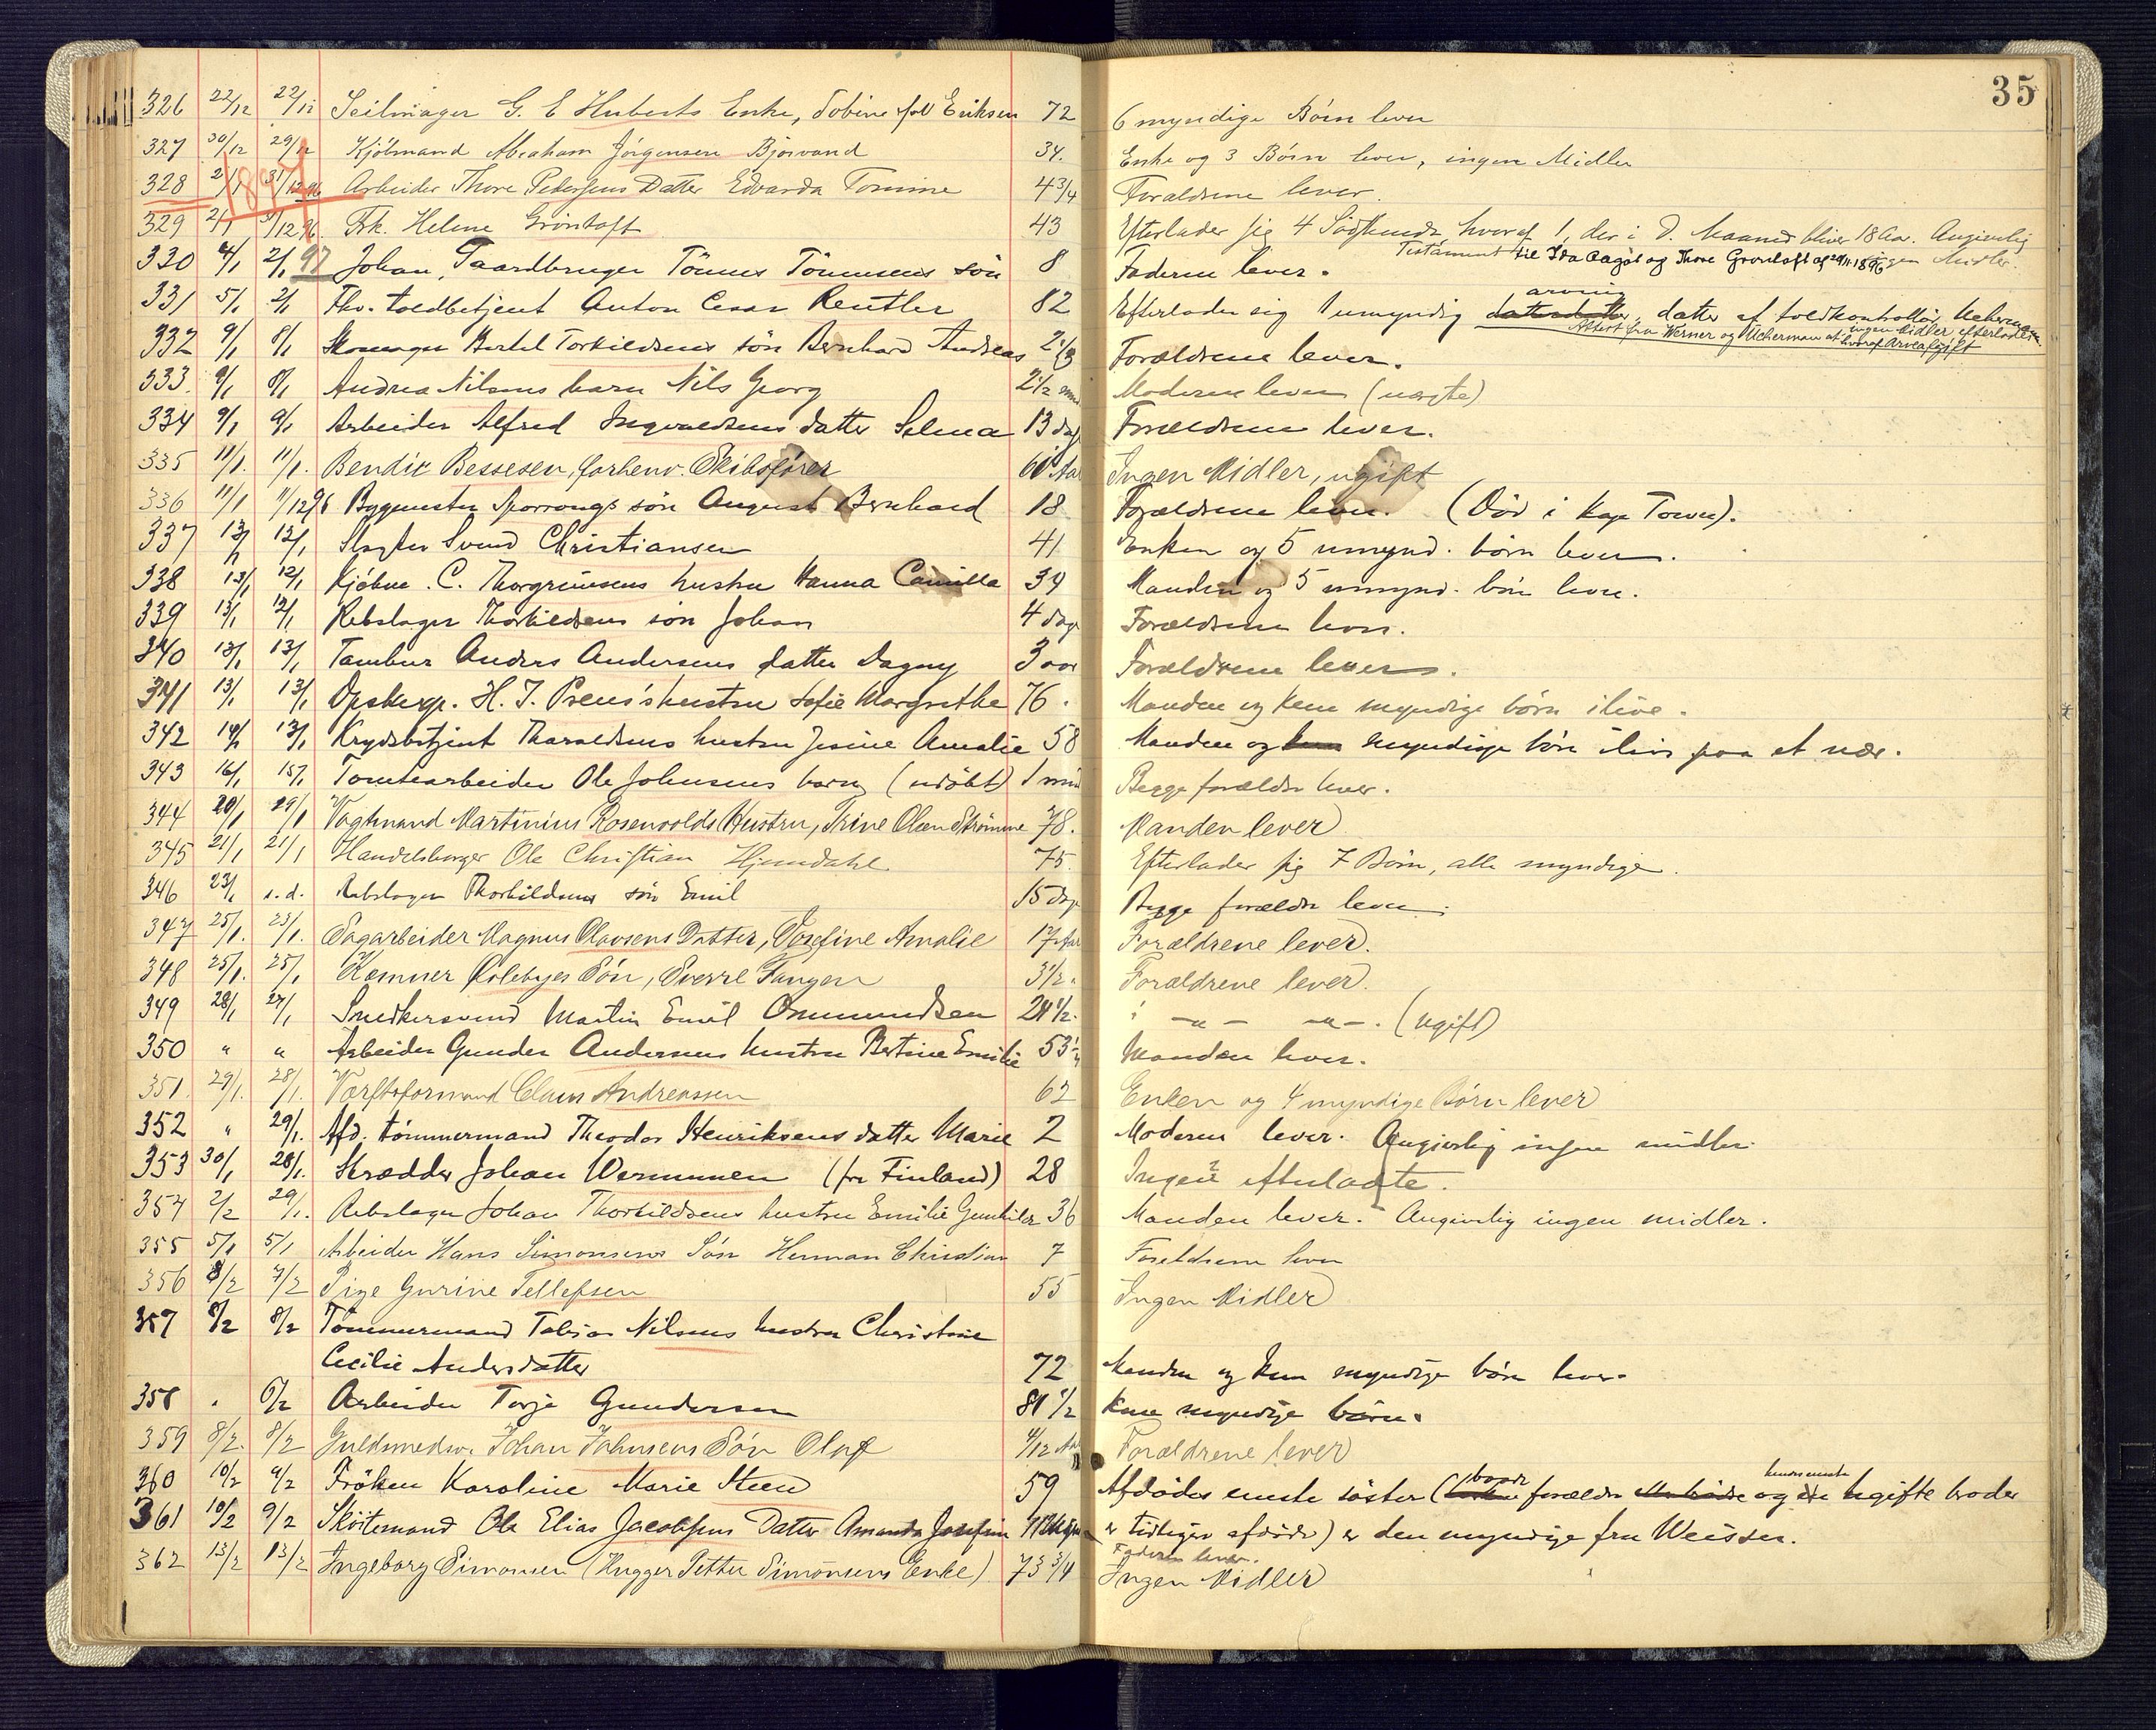 35
326 22/12 22/12 Seilmager G. E Huberts Enke, Tobine f/ Eriksen 72 6 myndige Børn lever
327 30/12 29/12 Kjöbmand Abraham Jörgensen Bjorvand 34. Enke og 3 Børn lever, ingen Midler
1897
328 2/1 31/12 96 Arbeider Thore Pedersens Datter Edvarda Tomine 4 3/4 Forældrene lever.
329 2/1 31/12 96. Frk. Helene Grönloft 43 Efterlader sig 4 Södskende hvoraf 1, der i D. Maaned bliver 18 Aar. Angivelig ingen Midler.
Testament til Ida Aagot og Thore Gronloft af 29/11-1896
330 4/1 2/1 97 Johan, Gaardbruger Tönnes Tönnesens sön 8 Faderen lever.
331 5/1 2/1 Fhv. toldbetjent Anton Cesar Reutler 82 Efterlader sig 1 umyndig datterdatter arving, datter af toldkontrollör Uckerman
Attest fra Werner og Uckerman at ingen Midler efterlades hvoraf Arveafgift
332 9/1 8/1 Skomager Bertel Torkildsens sön Bernhard Andreas 2 1/3 Forældrene lever.
333. 9/1 8/1 Andrea Nilsens barn Nils Georg 2 1/2 mnd Moderen lever (uægte)
334 9/1 9/1 Arbeider Alfred Ingvaldsens datter Selma 13 dag Forældrene lever.
335 11/1. 11/1. Bendix Bessesen, forhenv. Skibsfører 60 Aar Ingen Midler, ugift
336 11/1 11/12 96 Bygmester Sporrongs sön August Bernhard 18 Forældrene lever. (Död i Kap Town).
337 13/1 12/1 Slagter Svend Christiansen 41 Enken og 5 umynd. börn lever.
338 13/1 12/1 Kjöbm. C. Thorgrimsens hustru Hanna Camilla 34 Manden og 5 umynd. börn lever.
339 13/1 12/1 Rebslager Thorkildsens sön Johan 4 dag Forældrene lever.
340 13/1 13/1 Tambur Anders Andersens datter Dagny 3 aar Forældrene lever.
341 13/1 13/1 H. J. Preus's hustru Sofie Margrethe 76. Manden og kun myndige börn ilive.
342 14/1 13/1 Krydsbetjent Tharaldsens hustru Jesine Amalie 58 Manden og kun myndige börn ilive paa et nær.
343 16/1 15/1 Tomtearbeider Ole Johnsens barn (udöbt) 1 mnd Begge forældre lever.
344 20/1 19/1 Vagtmand Martinius Rosenvolds Hustru, Trine Olsen Strömme 78. Manden lever
345 21/1 21/1 Handelsborger Ole Christian Hjemdahl 75. Efterlader sig 7 Börn, alle myndige.
346 23/1 s.d. Rebslager Thorkildsens sön Emil 15 dag Begge forældre lever.
347 25/1. 23/1. Sagarbeider Magnus Olavsens Datter, Josefine Amalie 17 Aar Forældrene lever.
348 25/1. 25/1 Kæmner Kolebyes Sön, Sverre Fangen 3 1/2. Forældrene lever.
349 28/1 27/1 Snedkersvend Martin Emil Ommundsen 24 1/2. -"- -"-. (ugift)
350 " " Arbeider Gunder Andersens hustru Bertine Emilie 53 1/2 Manden lever.
351. 29/1. 28/1. Værftsformand Claus Andreassen 62 Enken og 4 myndige Børn lever
352 " 29/1. Afd. tömmermand Theodor Henriksens datter Marie 2 Moderen lever. Angivelig ingen midler.
353 30/1 28/1. Skrædder Johan Wernunen (fr Finland) 28 Ingen efterladte.
354 2/2 29/1. Rebslager Johan Thorkildsens hustru Emilie Gunhilda 36 Manden lever. Angivelig ingen midler.
355 5/1 5/1 Arbeider Hans Simonsens Sön Herman Christian 7 Forældrene lever
356 8/2 7/2 Pige Gurine Tellefsen 55 Ingen Midler
357 8/2 8/2 Tömmermand Tobias Nilsens hustru Christine
Cecilie Andersdatter 72 Manden og kun myndige börn lever.
358 . 6/2 Arbeider Terje Gundersen 81 1/2 Kun myndige börn.
359 8/2. 8/2 Guldsmedsv. Johan Johnsens Sön Olaf 4/12 Aar Forældrene lever
360 10/2 9/2 Fröken Karoline Marie Steen 59 Afdödes eneste söster (baade forældre og hendes eneste ugifte broder
361 10/2 9/2 Sköitemand Ole Elias Jacobsens Datter Amanda Josefine er tidligere afdöde) er den myndige fru Weisser.
Faderen lever.
362 13/2 13/2 Ingeborg Simonsen (Hugger Petter Simonsens Enke) 73 3/4 Ingen Midler